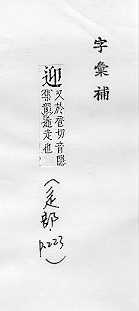 字彙補
迎
又於卺切音隱
走也
(辵部, p.223)